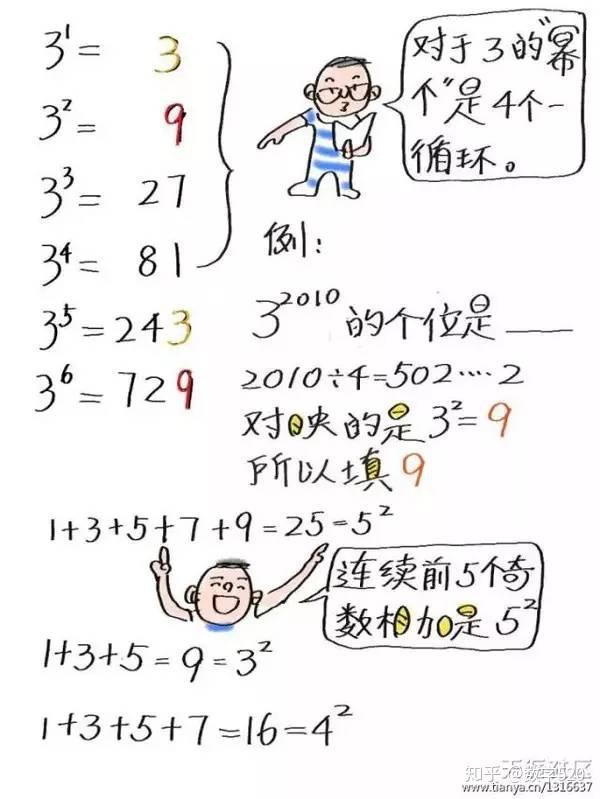 3¹= 3
3²= 9
3³= 27
3⁴= 81
3⁵=243
3⁶=729
对于3的“幂
个”是4个一
循环。
例:
3²⁰¹⁰的个位是___
2010÷4=502····2
对映的是3²=9
所以填9
1+3+5+7+9=25=5²
连续前5个奇
数相加是5²
1+3+5=9=3²
1+3+5+7=16=4²
天涯社区
www.tianya.cn/1316637